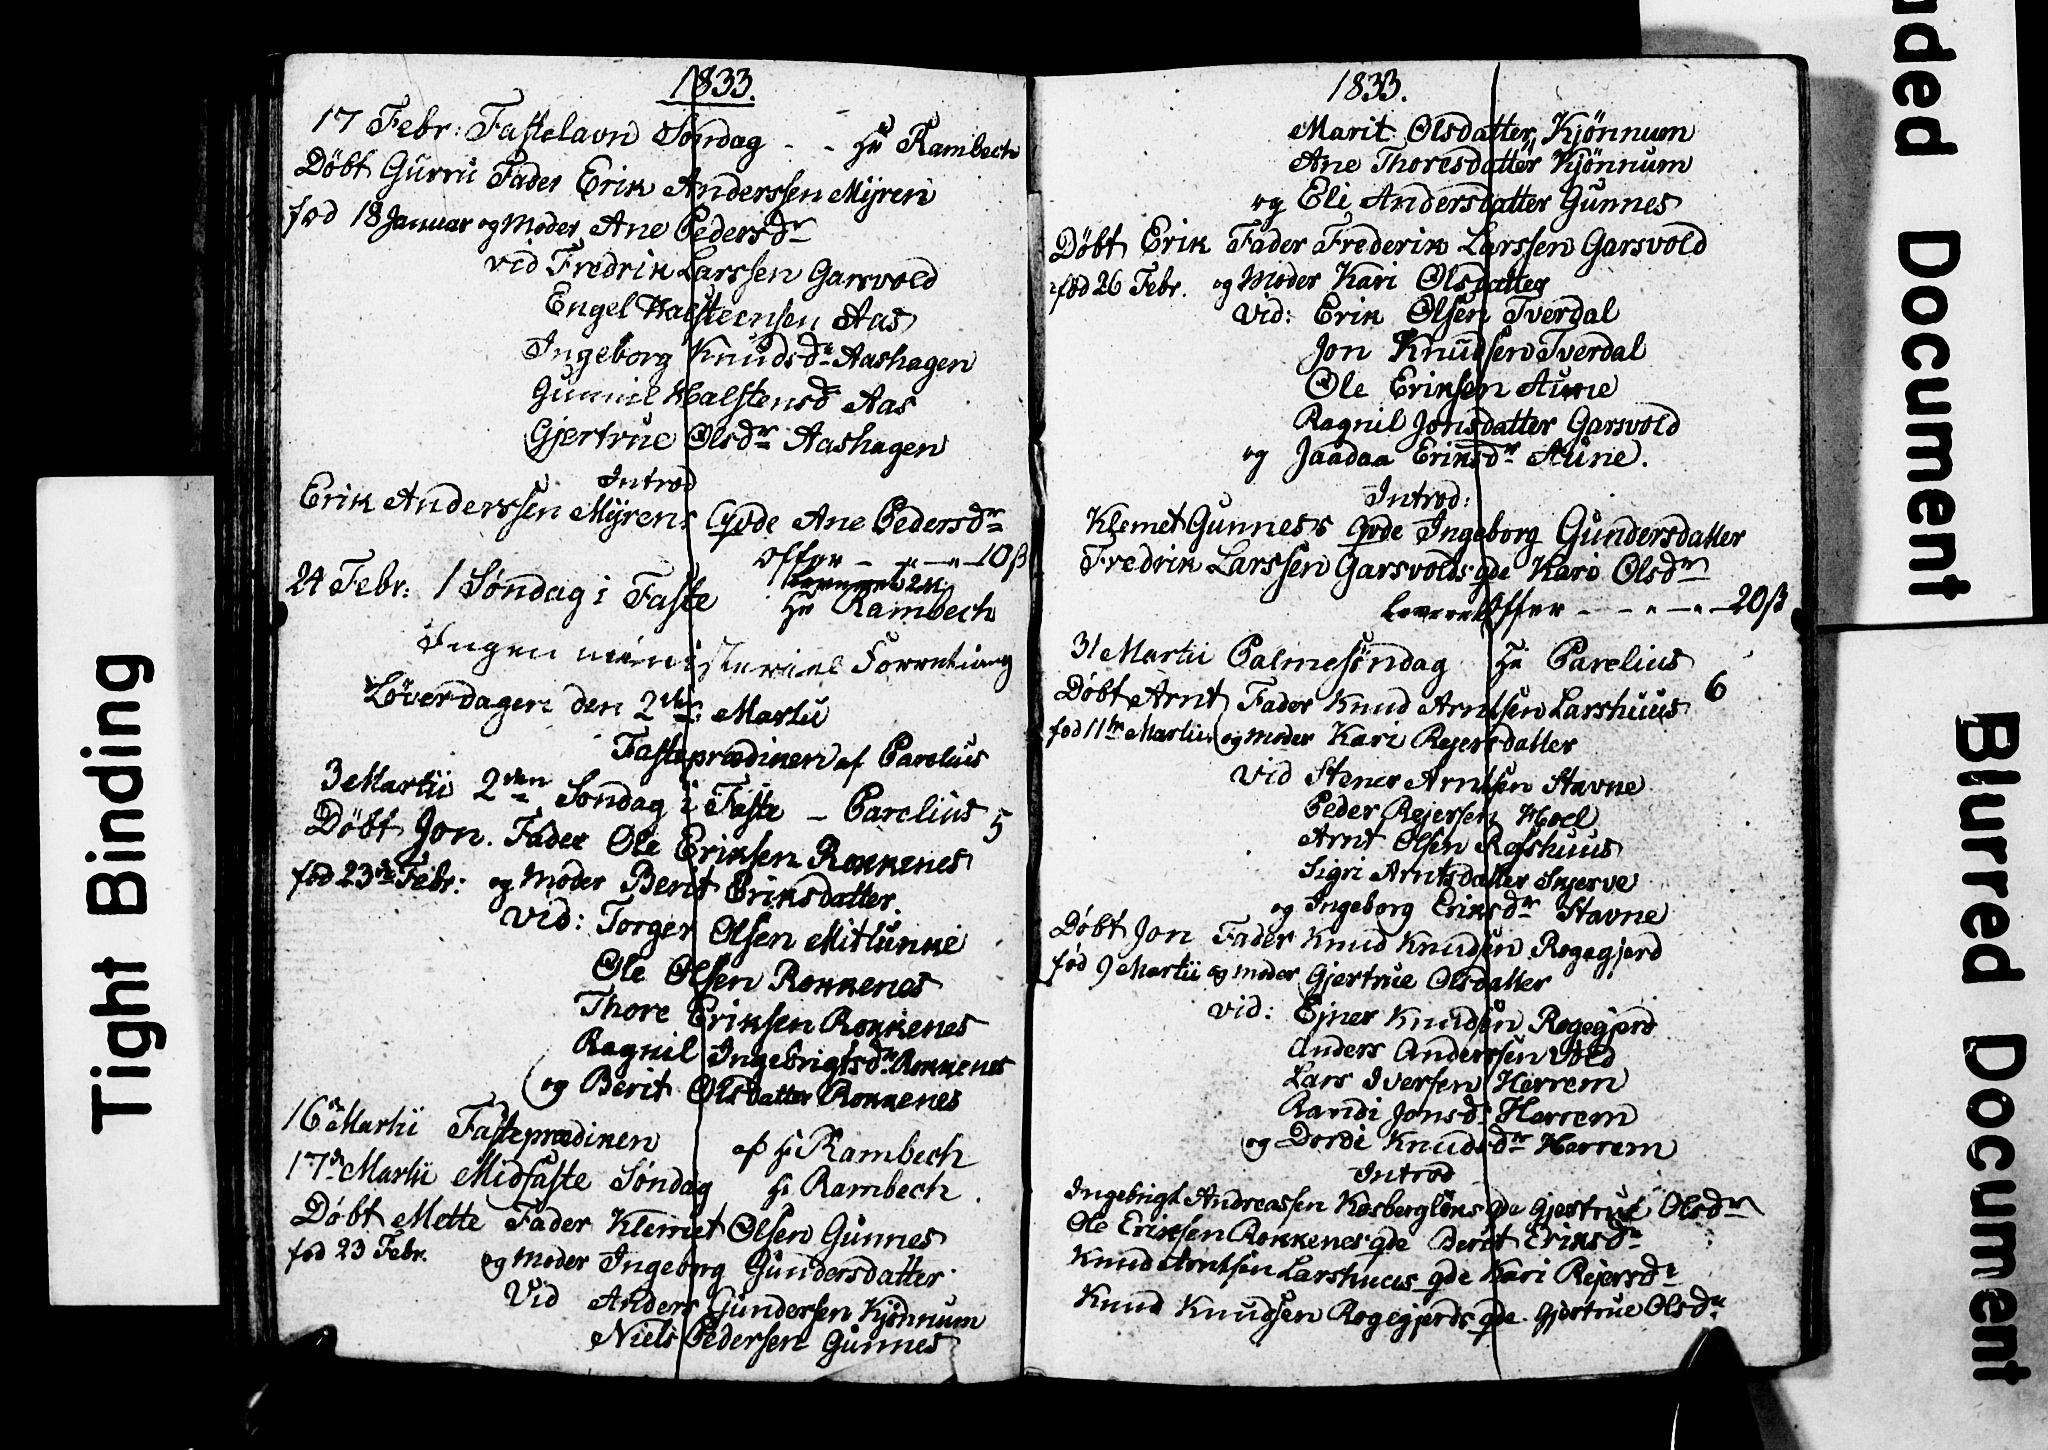 1833.
17 Febr: Fastelavn Søndag - - Hr Rambech
Døbt Gurru Fader Erik Anderssen Myren
fød 18 Januar og Moder Ane Pedersdr
vid Fredrik Larssen Garsvold
Engel Halsteensen Aas
Ingeborg Knudsdr Aashagen
Gunnil Halstensd Aas
Gjertrue Olsdr Aashagen
Introd
Erik Anderssen Myrens Gvde Ane Pedersdr
Offer - „ - „ - 10 ß
24 Febr: 1 Søndag i Faste Hr Rambech
Ingen ministeriel Forretning
Løverdagen den 2den Martii
Fasteprædiken af Parelius
3 Martii 2den Søndag i Faste - Parelius 5
Døbt Jon. Fader Ole Eriksen Rokkenes
fød 23de Febr: og Moder Berit Eriksdatter.
vid: Torger Olsen Mitlunke
Ole Olsen Rokkenes
Thore Eriksen Rokkenes
Ragnil Ingebrigtsdr Rokkenes
og Berit Olsdatter Rokkenes
16de Martii Fasteprædiken af Hr Rambech
17de Martii Midfaste Søndag Hr Rambech.
Døbt Mette Fader Klemet Olsen Gunnes
fød 23 Febr. og Moder Ingeborg Gundersdatter
Vid Anders Gundersen Kjönnum
Niels Pedersen Gunnes
1833.
Marit Olsdatter Kjönnum
Ane Thoresdatter Kjönnum
og Eli Andersdatter Gunnes
Døbt Erik Fader Frederik Larssen Garsvold
fød 26 Febr. og Moder Kari Olsdatter
vid: Erik Olsen Tverdal
Jon Knudsen Tverdal
Ole Eriksen Aune
Ragnil Jonsdatter Garsvold
og Jaadaa Eriksdr Aune.
Introd:
Klemet Gunness gvde Ingeborg Gundersdatter
Fredrik Larssen Garsvolds gde Kari Olsdr
Offer - - „ - „ - 20 ß
31 Martii Palmesøndag Hr Parelius
Døbt Arnt Fader Knud Arntsen Larshuus 6
fød 11te Martii og Moder Kari Rejersdatter
Vid Stener Arntsen Stavne
Peder Rejersen Hoel
Arnt Olsen Røshuus
Sigri Arntsdatter Skjerve
og Ingeborg Eriksdr Stavne
Døbt Jon Fader Knud Knudsen Rogegjerd
fød 9 Martii og Moder Gjertrue Olsdatter
vid: Ejner Knudsen Rogegjerd
Anders Anderssen Vold
Lars Iversen Herrem
Randi Jonsd: Herrem
og Dordi Knudsdr Herrem
Introd
Ingebrigt Andreassen gde Gjertrue Olsdr
Ole Eriksen Rokkenes gde Berit Eriksdr
Knud Arntsen Larshuus gde Kari Rejersdr
Knud Knudsen Rogegjerds gde. Gjertrue Olsdr
Tight Binding
nded Document
Blurred Document